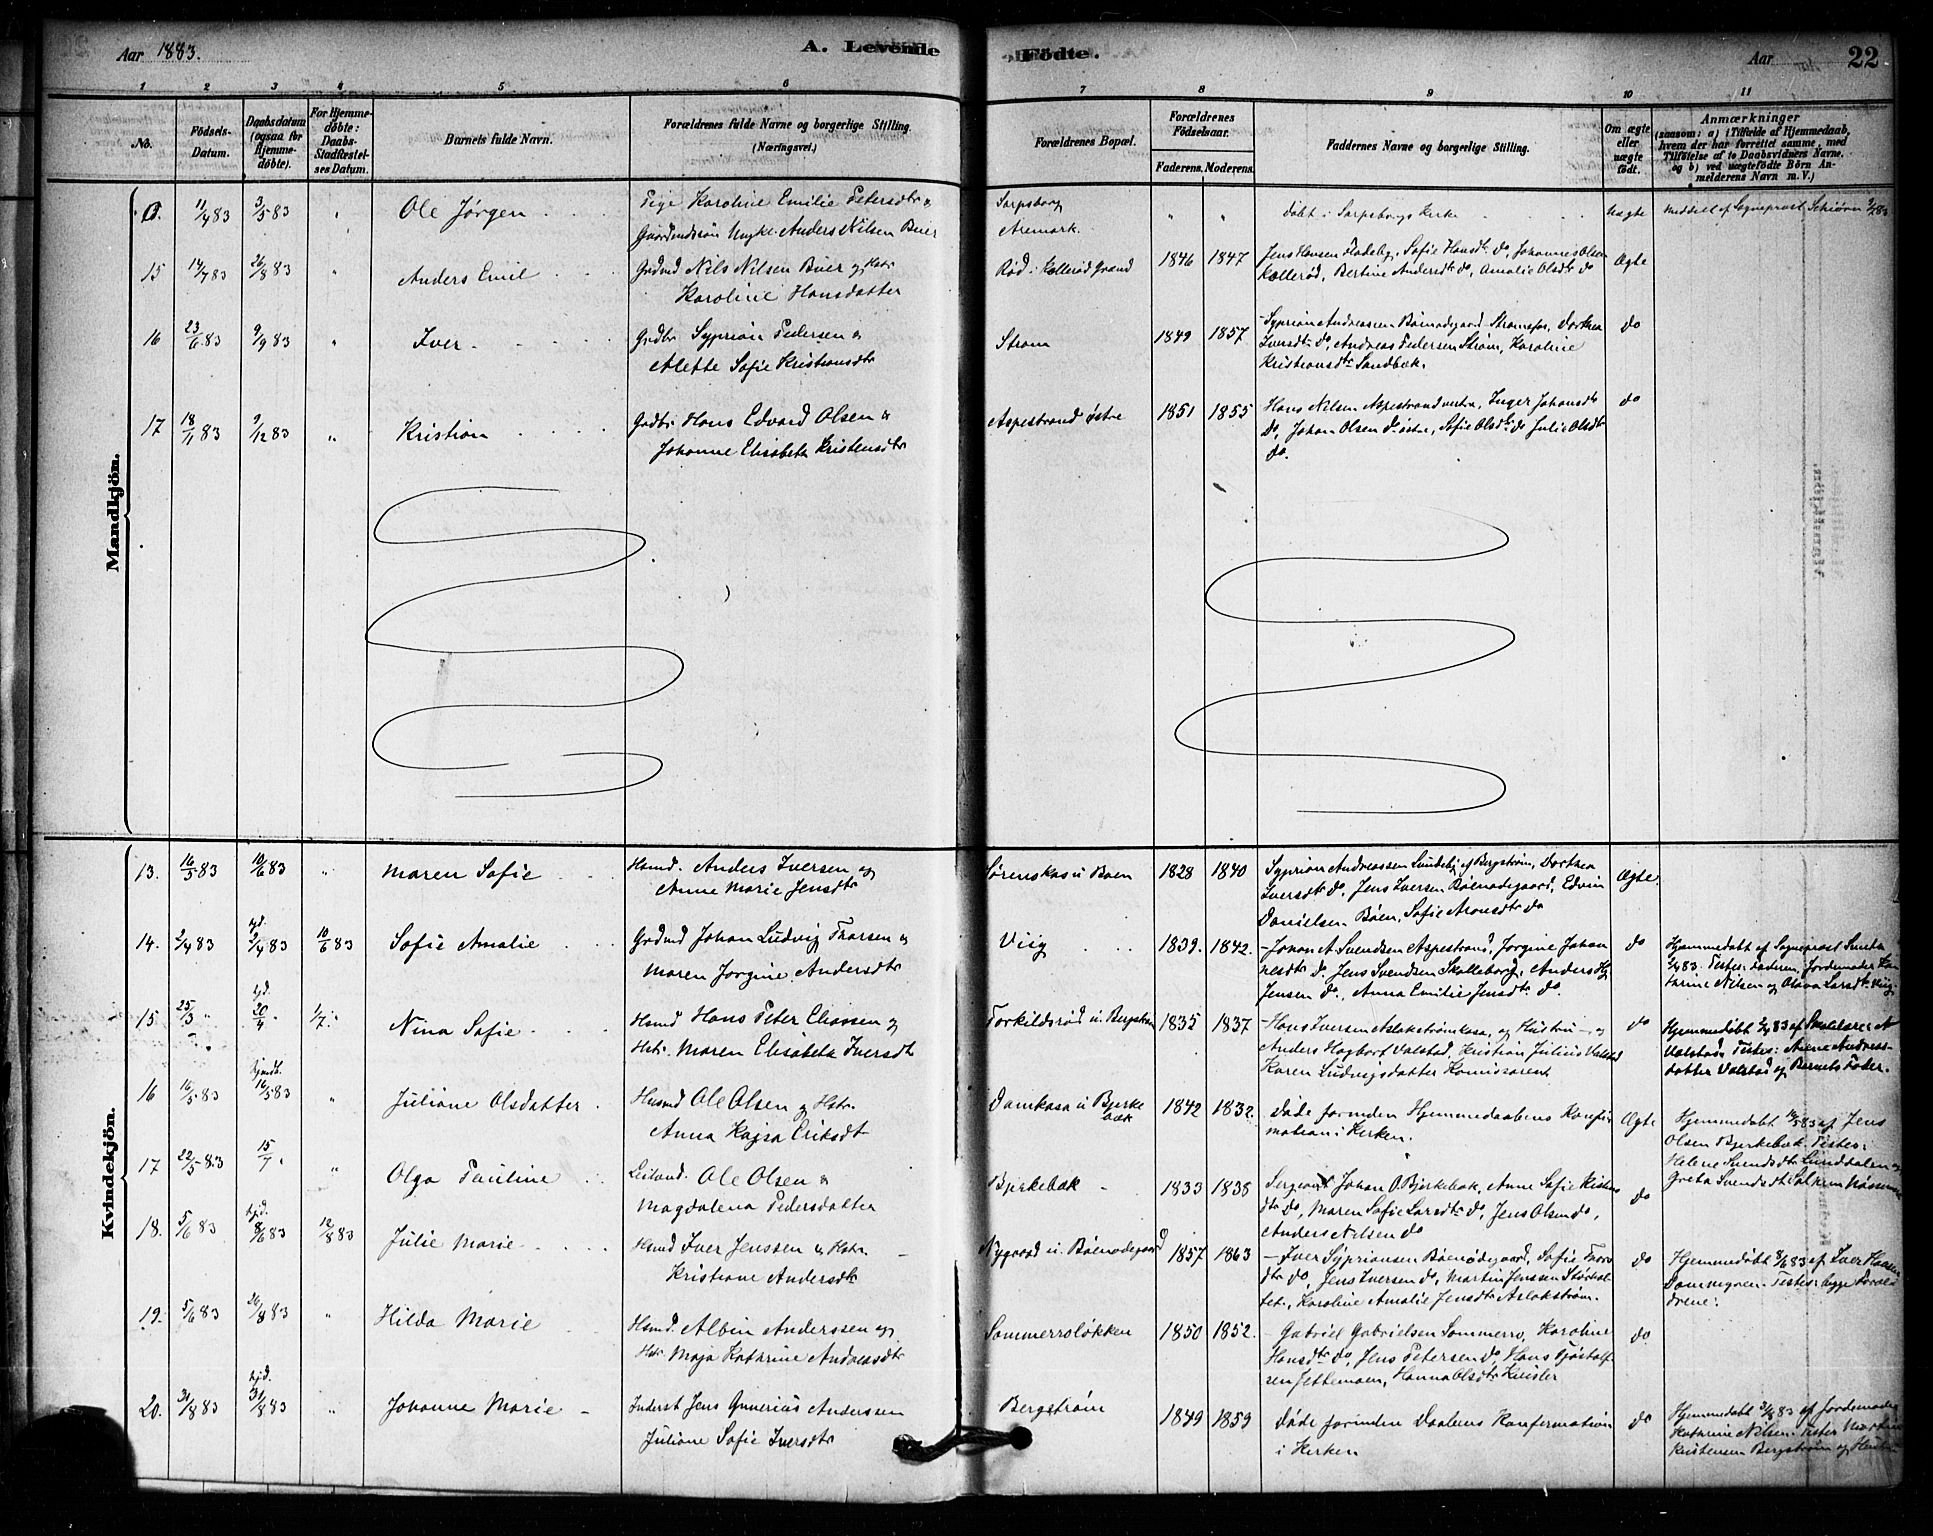 Aar 1883.
A. Levende
Födte.
Aar
22
1 2 3 4 5 6 7 8 9 10 11
No.
Födsels-Datum.
Daabsdatum (ogsaa for Hjemmedöbte).
For Hjemmedöbte: Daabs-Stadfæstelses Datum.
Barnets fulde Navn.
Forældrenes fulde Navne og borgerlige Stilling. (Næringsvei.)
Forældrenes Bopæl.
Forældrenes Födselsaar.
Faderens. Moderens.
Faddernes Navne og borgerlige Stilling.
Om ægte eller uægte födt.
Anmærkninger
(saasom: a) i Tilfælde af Hjemmedaab, hvem der har forrettet samme, med Tilföielse af to Daabsvidners Navne, og b) ved uægtefödte Börn Anmelderens Navn m. V.)
Mandkjön.
0. 11/4 83 3/5 83 " Ole Jørgen
Pige Karoline Emilie Petersdtr &
Gaardmandssøn Ungk. Anders Nilsen Buer
Sarpsborg
Aremark.
" " döbt i Sarpsborgs Kirke Uægte
Meddelt af Sogneprest Schiørn
15 14/7 83 26/8 83 " Anders Emil
Grdmd Nils Nilsen Buer og Hstr
Karoline Hansdatter
Rød i Kollerød Grænd 1846 1847
Jens Hansen Fladeby, Sofie Hansdtr do, Johannes Olsen
Kollerød, Bertine Andersdtr do, Amalie Olsdtr do
Ægte
16 23/6 83 9/9 83 " Iver
Grdbr Syprian Pedersen &
Alette Sofie Kristiansdtr
Strøm 1849 1857
Syprian Andreassen Bøenødegaard Strømsfos, Dorthea
Iversdtr do, Andreas Pedersen Strøm, Karoline
Kristiansdtr Sandbæk.
do
17 18/11 83 9/12 83 " Kristian
Grdbr. Hans Edvard Olsen &
Johanne Elisabeth Kristensdtr
Aspestrand østre 1851 1855
Hans Nilsen Aspestrand vestre, Inger Johansdtr
do, Johan Olsen do østre, Sofie Olsdtr do Julie Olsdtr
do.
do
Kvindekjön.
13. 16/5 83 10/6 83 " Maren Sofie
Hsmd. Anders Iversen og
Anne Marie Jensdtr
Sørenskas u Bøen 1828 1840
Syprian Andreassen Lundeby af Bergstrøm, Dorthea
Iversdtr do, Jens Iversen Bøenødegaard, Edvin
Danielsen Bøen, Sofie Aronsdtr do
Ægte
14. 2/4 83 hjd. 2/4 83 10/6 83 Sofie Amalie
Grdmd Johan Ludvig Thorsen &
Maren Jørgine Andersdtr
Viig 1839. 1842.
Johan A. Svendsen Aspestrand, Jørgine Johan
nesdtr do. Jens Svendsen Skolleborg, Anders Hj
Jensen do., Anna Emilie Jensdtr do.
do
Hjemmedøbt af Sogneprest
2/4 83. Testes: Faderen, Jordemoder Ka
thrine Nilsen og Olava Larsdtr Viig
15 25/3 " hjd. 20/4 " 1/7 " Nina Sofie
Hsmd Hans Peter Eliassen og
Hstr. Maren Elisabeth Iversdtr
Torkildsrød u. Bergstrøm 1835 1837
Hans Iversen Aslakstrømkasa, og Hustru og
Anders Hagbart Valstad, Kristian Julius Valstad
Karen Ludvigsdatter Komissærent.
do
Hjemmedøbt 83 af Skolelærer A
Valstad. Testes: Anne Andreas-
datter Valstad og Barnets Fader.
16 16/5 83 hjmdb. 16/5 83 " Juliane Olsdatter
Husmd Ole Olsen og Hstr.
Anna Kajsa Eriksdtr
Damkasa u Bjerke
bæk 1842 1832
Døde forinden Hjemmedaabens Konfir
mation i Kirken.
Ægte
Hjemmedøbt 16/5 83 af Jens
Olsen Bjerkebæk. Testes:
Helene Svendsdtr Lunddalen og
Greta Svendsdtr
17 22/5 83 15/7 " " Olga Pauline
Leilænd. Ole Olsen &
Magdalena Pedersdatter
Bjerkebæk 1833 1838
Sergeant Johan O. Bjerkebæk, Anne Sofie
dtr do, Maren Sofie Larsdtr do, Jens Olsen do,
Anders Nilsen do
do
18. 5/6 83 hjd. 8/6 83 12/8 83 Julie Marie
Hsmd Iver Jenssen & Hstr.
Kristiane Andersdtr
Nygaard u. Bøenødegaard 1857 1863
Iver Sypriansen Bøenødegaard, Sofie Thors
dtr do, Jens Iversen do, Martin Jenssen
Karoline Amalie Jensdtr Aslakstrøm.
do
Hjemmedøbt 8/6 83 af Iver Hansen
Dammyren. Testes: begge Foræl
drene.
19. 5/6 83 26/8 83 " Hilda Marie
Hsmd. Albin Anderssen og
Hstr Maja Kathrine Andreasdtr
Sommerroløkken 1850 1852.
Gabriel Gabrielsen Sommerro, Karoline
Hansdtr do, Jens Petersen do, Hans Tjøstolf
sen Jettemoen, Hanna Olsdtr Kinsler
do
20. 31/8 83 hjd. 31/8 83 " Johanne Marie
Inderst Jens Gunerius Anderssen
Juliane Sofie Iversdtr
Bergstrøm 1849 1859
Døde forinden Daabens Konfermation
i Kirken
do
Hjemmedøbt 31/8 83 af Jordemoder
Kathrine Nilsen. Testes Martin
Kristensen Bergstrøm og Hustru